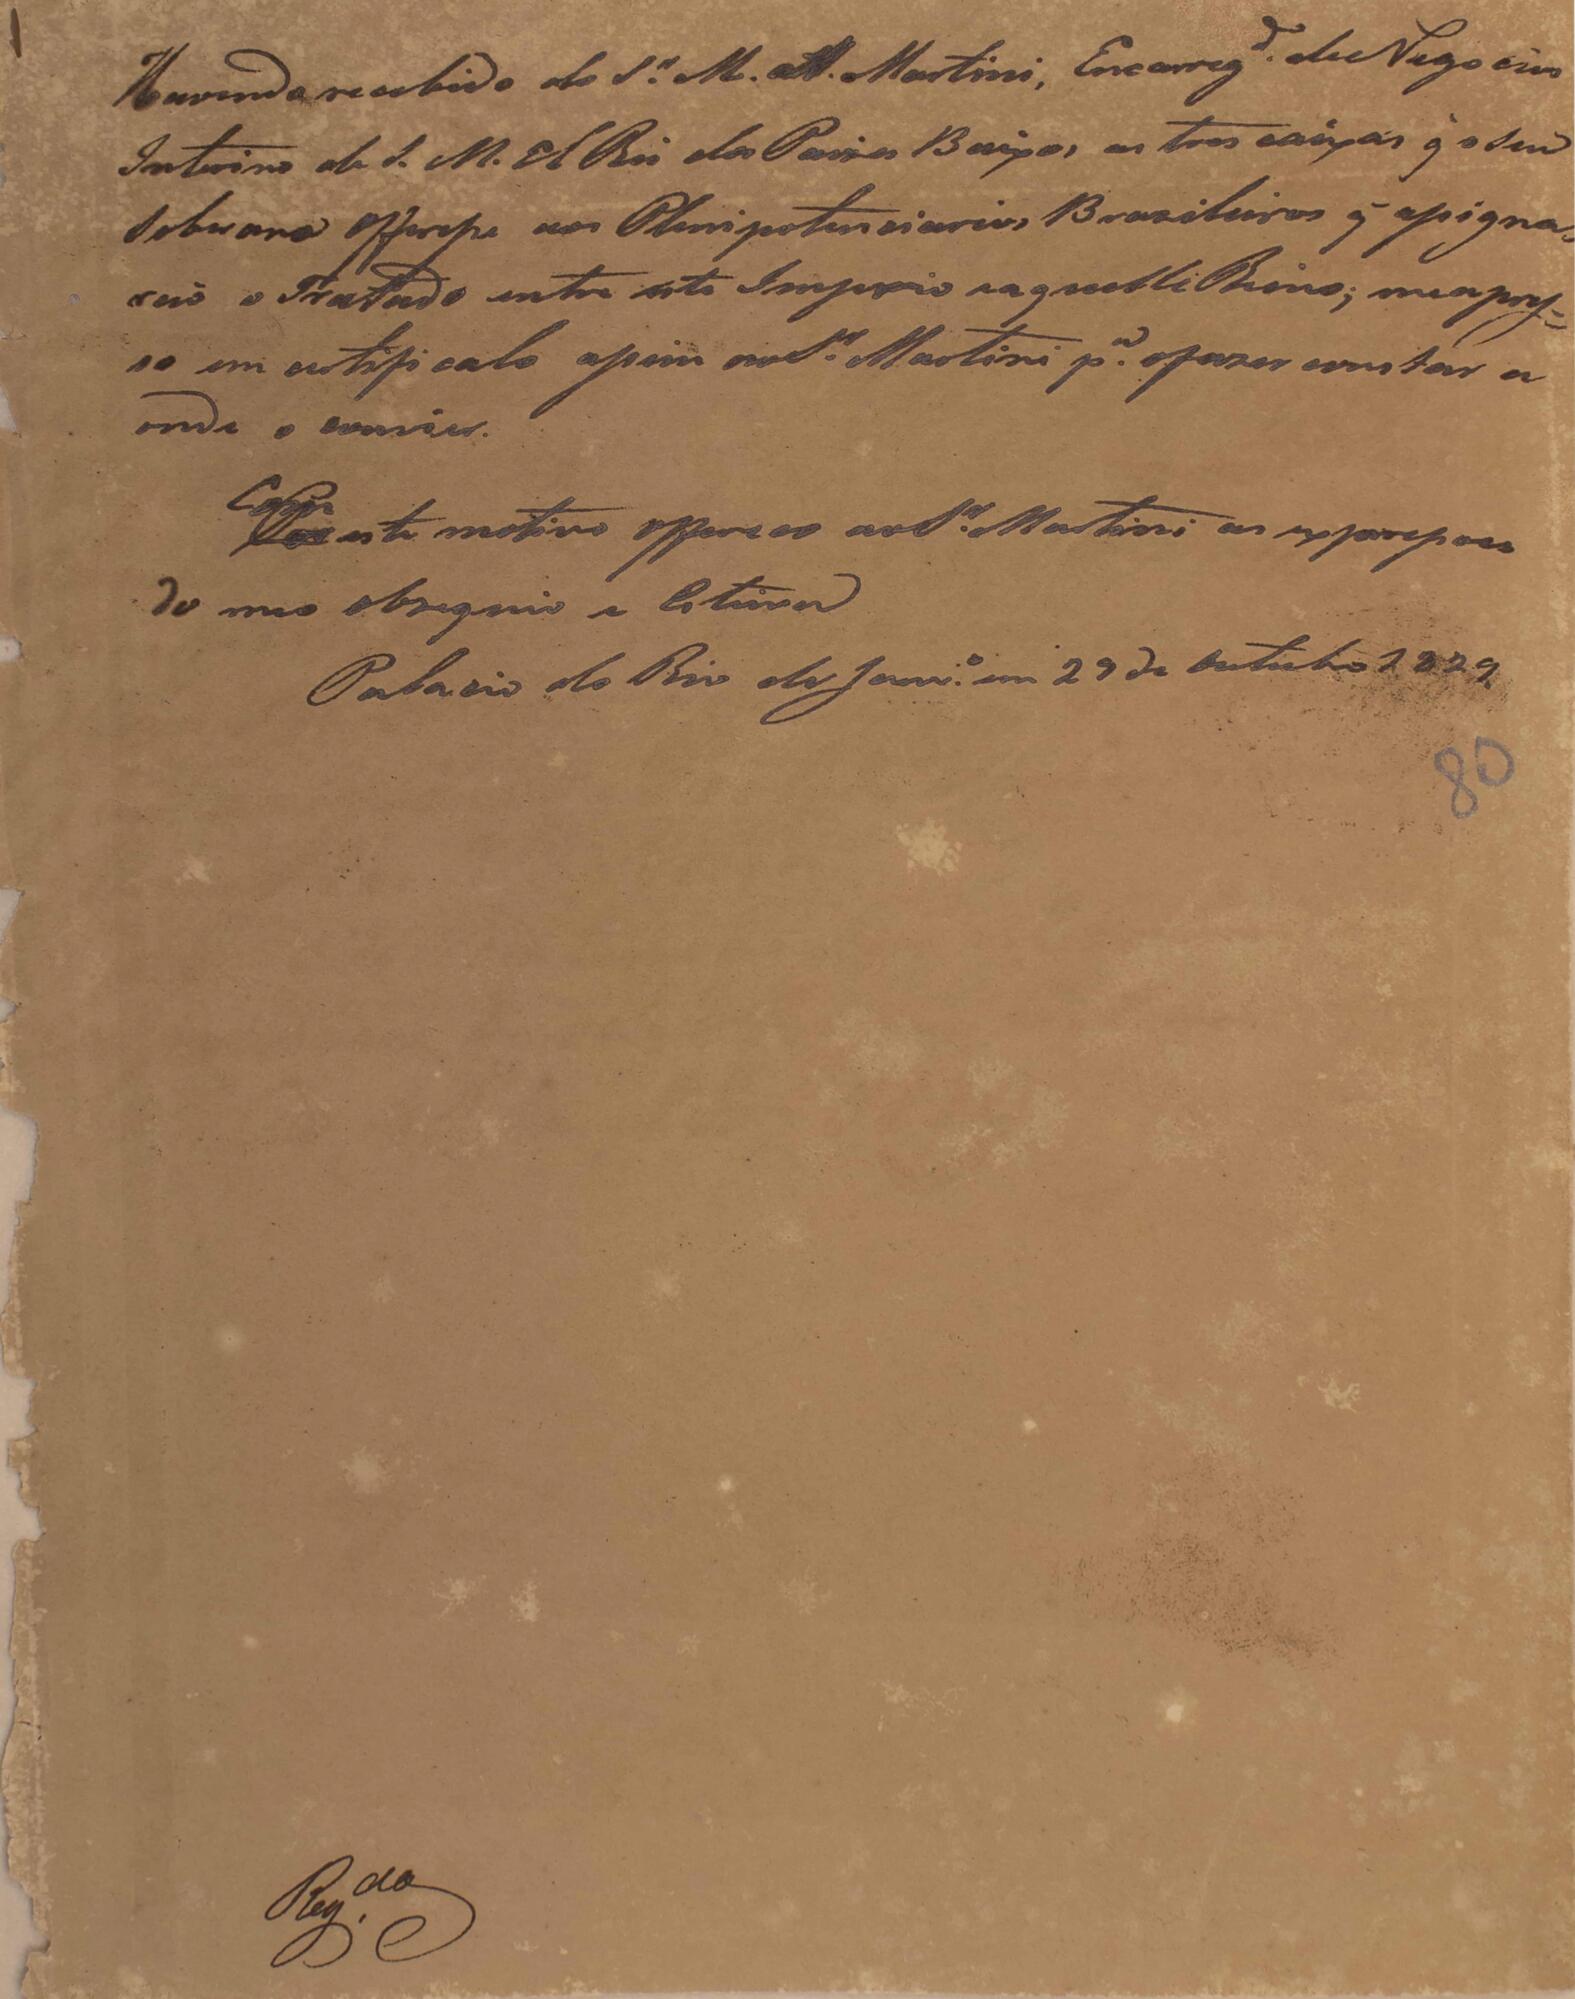 Havendo recebido do S.r M. M. Martini, Encarreg.do de Negocios
Interino de S. M. El Rei dos Paizes Baixos as tres caixas q̃ o seu
soberano offeresse aos Plenipotenciarios Brazileiros q̃ assigna-
rão o Tratado entre este Imperio e aquelle Reino; me apres-
so em certificalo assim ao S.r Martini p.a o fazer constar a
onde o convier.
Com
Por este motivo offereco ao S.r Martini as expressoes
do meo obzequio e Estima
Palacio do Rio de Janr.o em 29 de Outubro 1829.
80
Reg.do